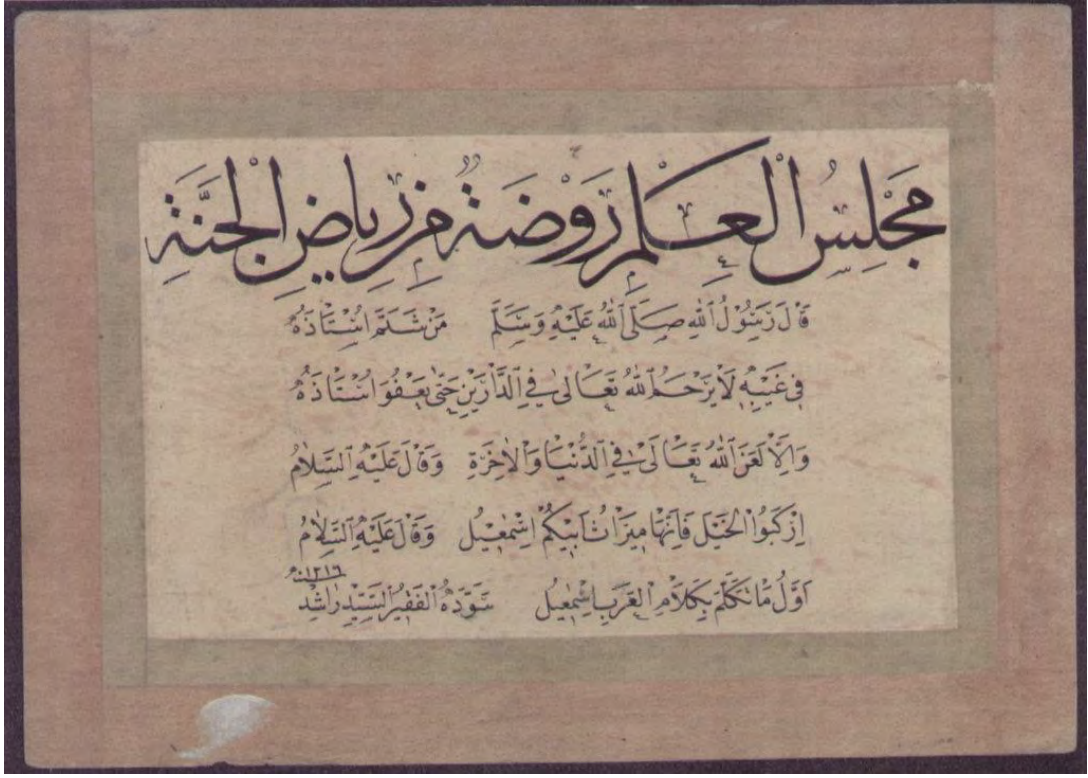 مَجْلِسُ الْعِلْمِ رَوْضَةٌ مِنْ رِيَاضِ الْجَنَّةِ
قَالَ رَسُوْلُ اللّٰهِ صَلَّى اللّٰهُ عَلَيْهِ وَسَلَّمَ مَنْ شَتَمَ اُسْتَاذَهُ
فِى غَيْبِهِ لَا يَرْحَمُ اللّٰهُ تَعَالٰى فِى الدَّارَيْنِ حَتّٰى يَعْفُوَ اُسْتَاذَهُ
وَاِلَّا لَعَنَ اللّٰهُ تَعَالٰى فِى الدُّنْيَا وَالْاٰخِرَةِ وَقَالَ عَلَيْهِ السَّلَامُ
اِرْكَبُوا الْخَيْلَ فَاِنَّهَا مِيْرَاثُ اَبِيْكُمْ اِسْمٰعِيْلَ وَقَالَ عَلَيْهِ السَّلَامُ
اَوَّلُ مَا تَكَلَّمَ بِكَلَامِ الْعَرَبِ اِسْمٰعِيْلُ سَوَّدَهُ الْفَقِيْرُ السَّيِّدْ رَاشِدْ
سنه ١٢١٦